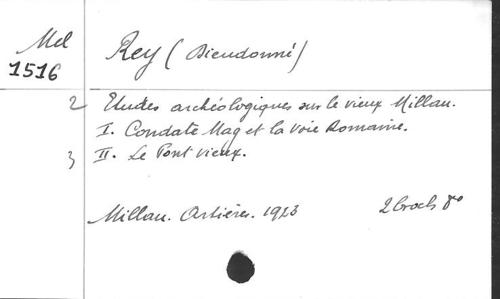 Mel
1516
Rey (Dieudonné)
2 Etudes archéologiques sur le vieux Millau.
I. Condate Mag et la Voie Romaine.
3 II. Le Pont vieux.
Millau. Artières. 1923 2 broch 8°